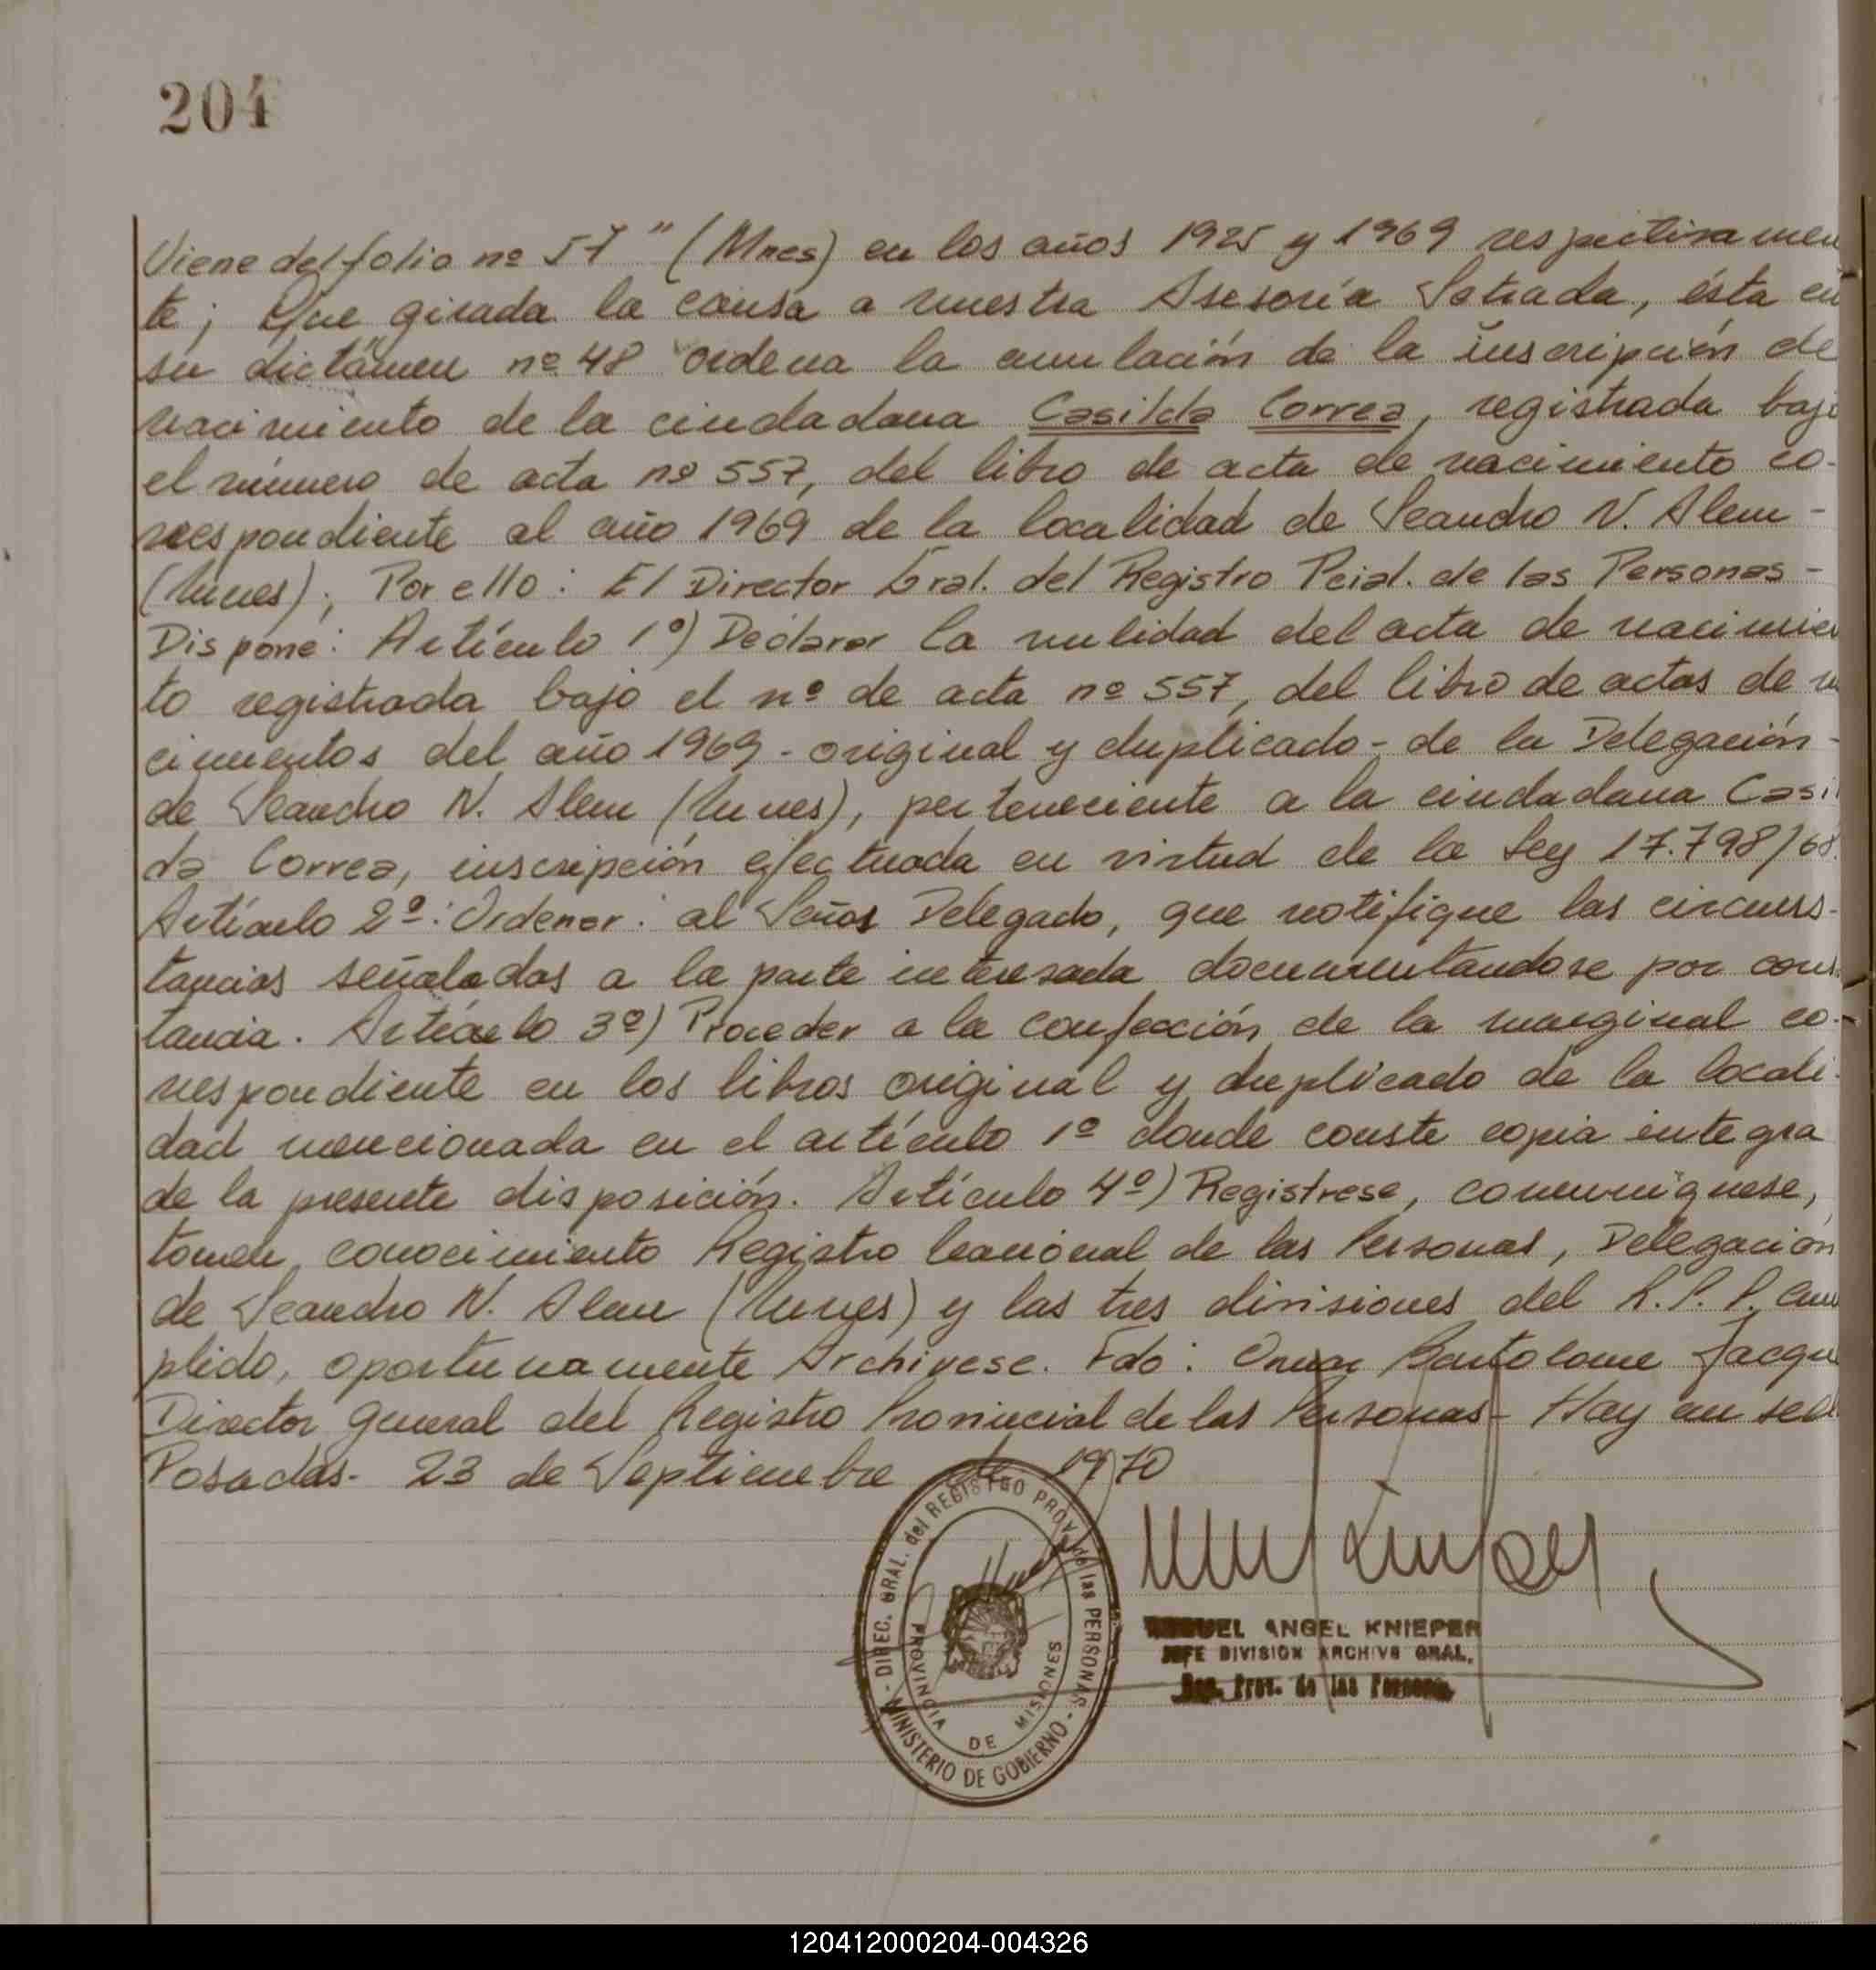 204
Viene del folio nº 57" (Mnes) en los años 1925 y 1969 respectivamen
te; Que girada la causa a nuestra Asesoría Letrada, ésta en
su dictámen nº 48 ordena la anulación de la inscripción de
nacimiento de la ciudadana Casilda Correa, registrada bajo
el número de acta nº 557, del libro de acta de nacimiento co-
rrespondiente al año 1969 de la localidad de Leandro N. Alem -
(Mnes); Por ello: El Director Gral. del Registro Pcial. de las Personas -
Dispone: Artículo 1º) Declarar la nulidad del acta de nacimien
to registrada bajo el nº de acta nº 557, del libro de actas de na
cimientos del año 1969 - original y duplicado - de la Delegación -
de Leandro N. Alem (Mnes), perteneciente a la ciudadana Casil
da Correa, inscripción efectuada en virtud de la Ley 17.798/68.
Artículo 2º: Ordenar: al Señor Delegado, que notifique las circuns-
tancias señaladas a la parte interesada documentandose por cons-
tancia. Artículo 3º) Proceder a la confección de la marginal co-
rrespondiente en los libros original y duplicado de la locali-
dad mencionada en el artículo 1º donde conste copia integra
de la presente disposición. Artículo 4º) Registrese, comuniquese,
tomen conocimiento Registro Nacional de las Personas, Delegación
de Leandro N. Alem (Mnes) y las tres divisiones del R. P. P. Cum
plido, oportunamente Archivese. Fdo: Omar Bartolome Jacqu
Director General del Registro Provincial de las Personas - Hay un sello
Posadas - 23 de Septiembre de 1970
DIREC. GRAL. del REGISTRO PROV. de las PERSONAS
PROVINCIA DE MISIONES
- MINISTERIO DE GOBIERNO -
MIGUEL ANGEL KNIEPER
JEFE DIVISION ARCHIVO GRAL.
Reg. Prov. de las Personas
120412000204-004326